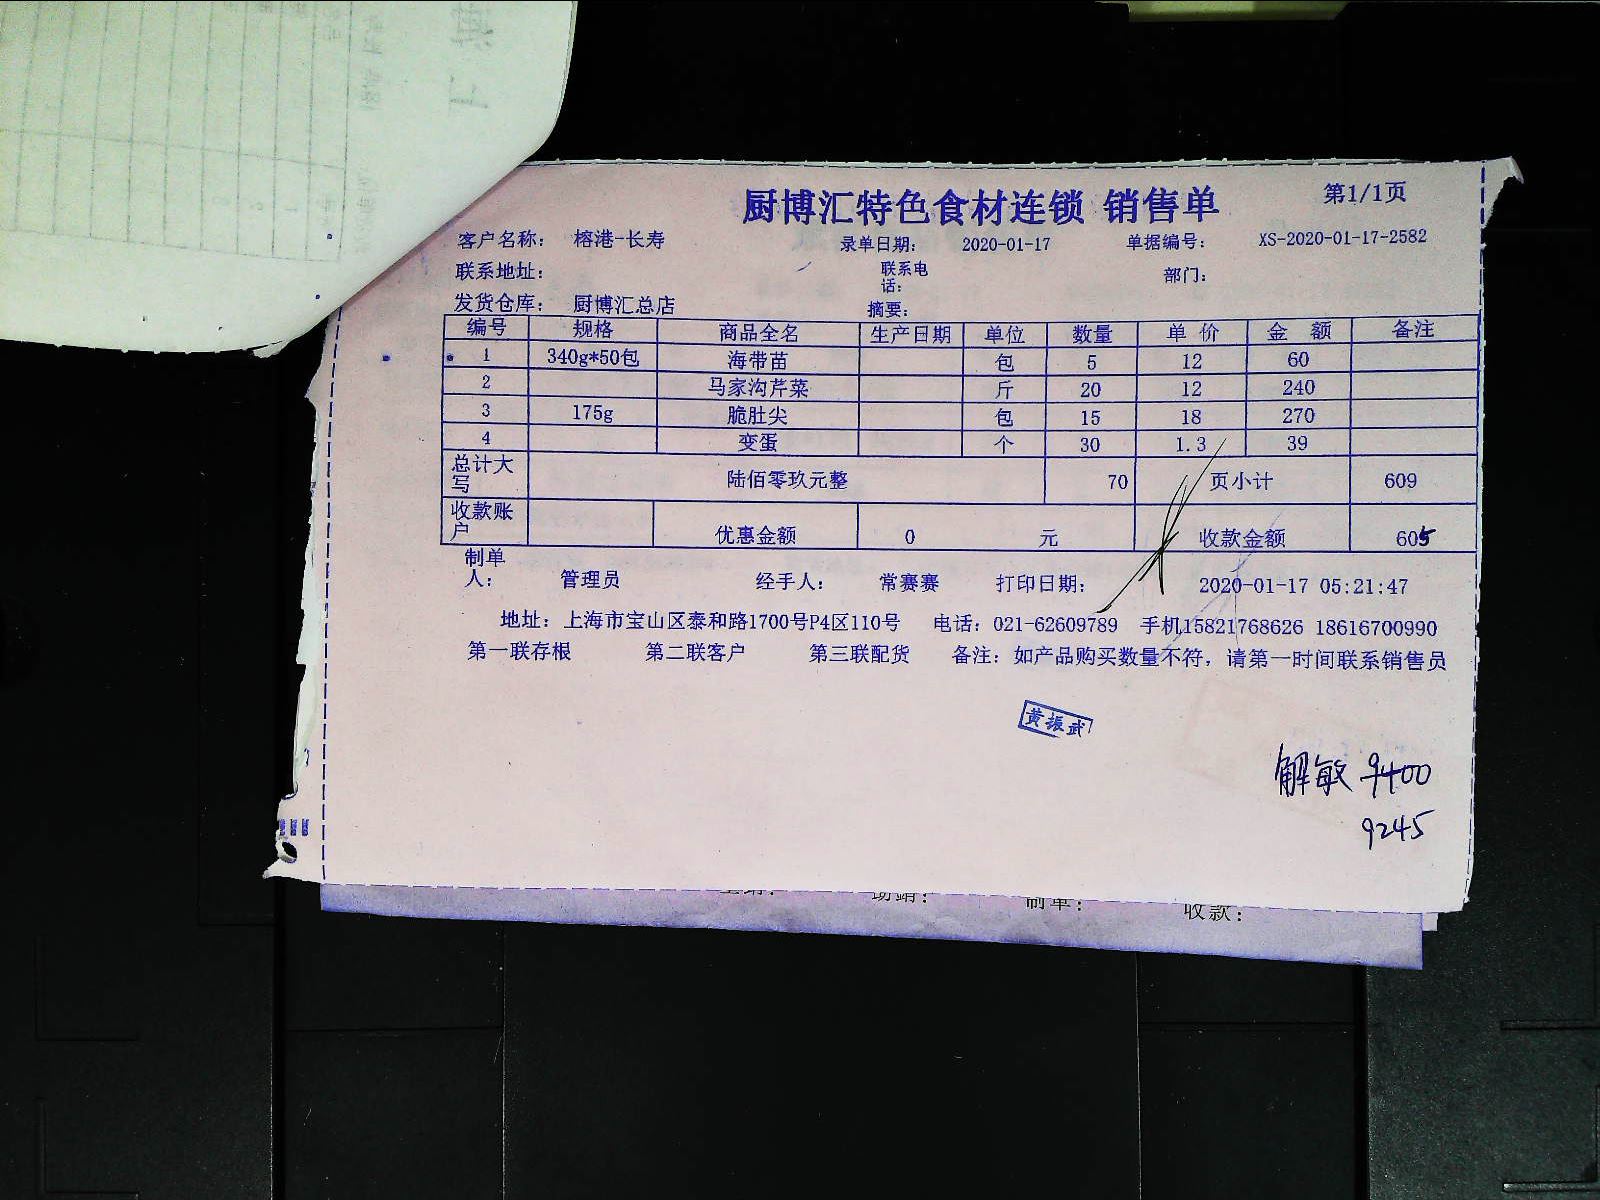 厨博汇特色食材连锁 销售单
第1/1页
客户名称： 榕港-长寿 录单日期： 2020-01-17 单据编号： XS-2020-01-17-2582
联系地址： 联系电话： 部门：
发货仓库： 厨博汇总店 摘要：
编号 规格 商品全名 生产日期 单位 数量 单 价 金 额 备注
1 340g*50包 海带苗 包 5 12 60
2 马家沟芹菜 斤 20 12 240
3 175g 脆肚尖 包 15 18 270
4 变蛋 个 30 1.3 39
总计大写 陆佰零玖元整 70 页小计 609
收款账户 优惠金额 0 元 收款金额 605
制单人： 管理员 经手人： 常赛赛 打印日期： 2020-01-17 05:21:47
地址：上海市宝山区泰和路1700号P4区110号 电话：021-62609789 手机15821768626 18616700990
第一联存根 第二联客户 第三联配货 备注：如产品购买数量不符，请第一时间联系销售员
黄振武
解敏 9400
9245
制单： 收款：